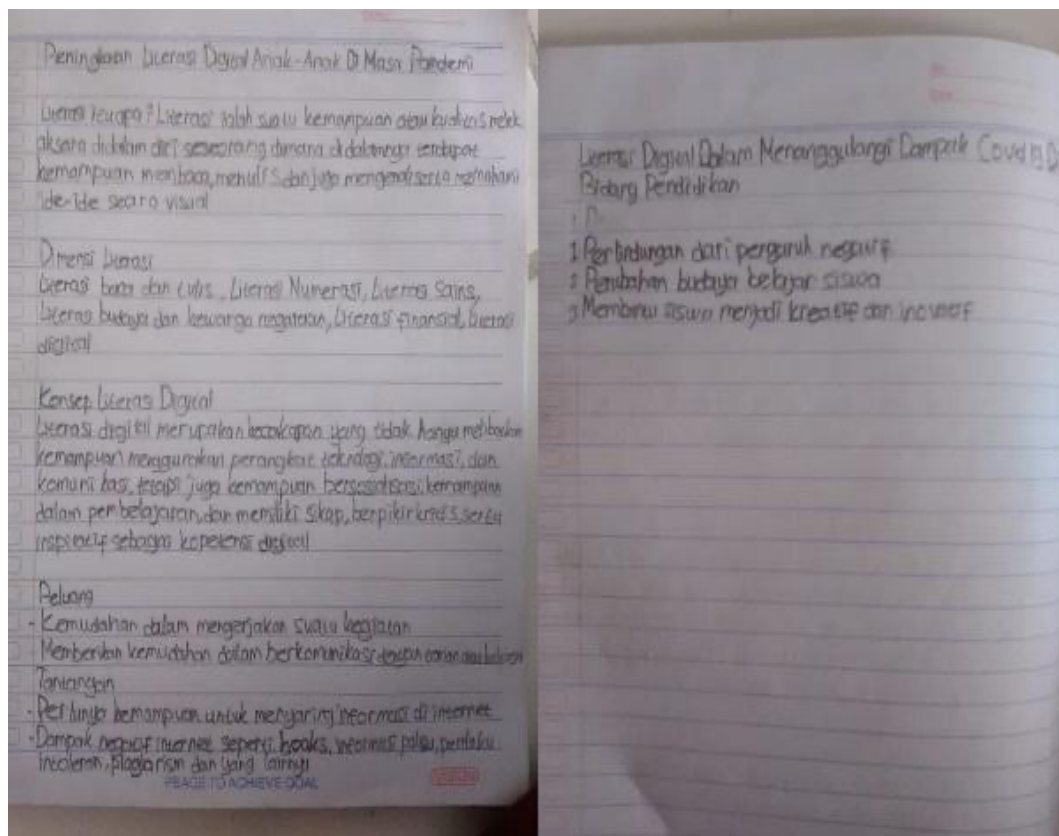 Peningkaan Literasi Digital Anak-Anak Di Masa Pandemi
Literasi Literasi ialah suatu kemampuan atau kualitas melek
aksara didalam diri seseorang dimana didalamnya terdapat
kemampuan membaca, menulis dan juga mengenali serta memahami
ide-ide secara visual
Dimensi Literasi
Literasi baca dan tulis, Literasi Numerasi, Literasi Sains,
Literasi budaya dan kewarga negaraan, Literasi financial, Literasi
digital
Konsep Literasi Digital
Literasi digital merupakan kecakapan yang tidak hanya melibatkan
kemampuan menggunakan perangkat teknologi, informasi, dan
komuni kasi, tetapi juga kemampuan bersosialisasi, kemampuan
dalam pembelajaran, dan memiliki sikap, berpikir kritis, serta
inspiratif sebagai kopetensi digital
Peluang
- Kemudahan dalam mengerjakan suatu kegiatan
- Memberikan kemudahan dalam berkomunikasi dengan
Tantangan
- Perlunya kemampuan untuk menyaring informasi di internet
- Dampak negatif internet seperti hoaks, informasi palsu, perilaku
intoleran, plagiarism dan yang lainnya
PEACE TO ACHIEVE GOAL
Literasi Digital Dalam Menanggulangi Dampak Covid 19 D
Bidang Pendidikan
1 Perlindungan dari pengaruh negatif
2 Perubahan budaya belajar siswa
3 Membantu siswa menjadi kreatif dan inovatif